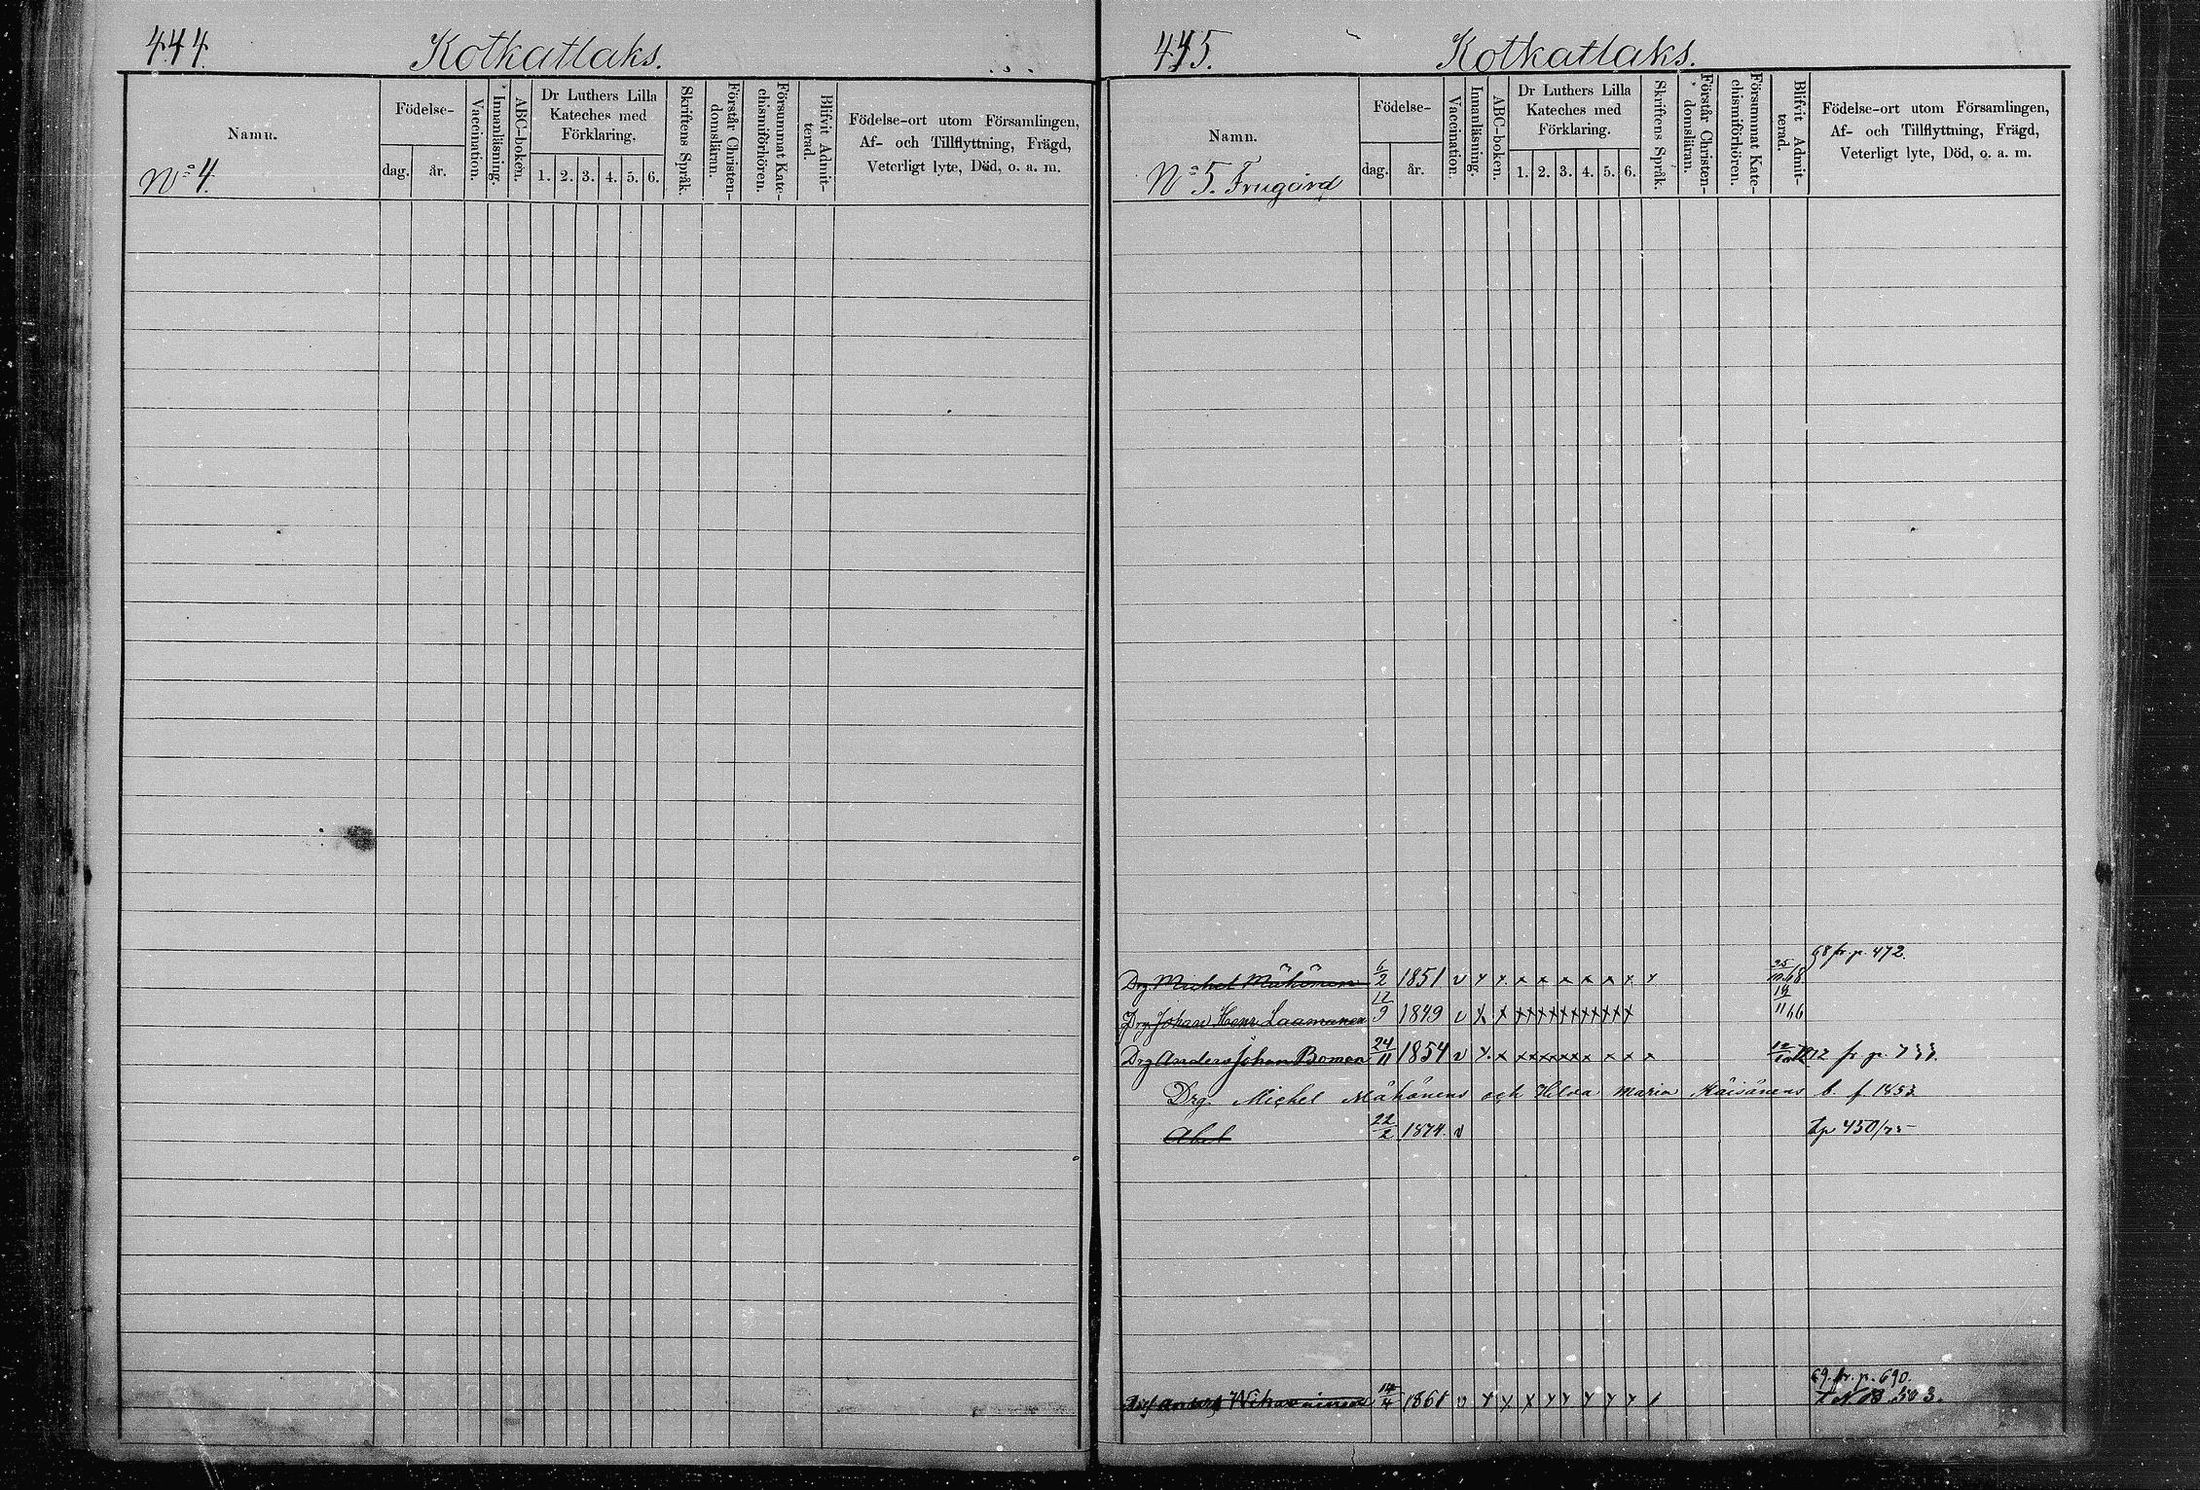 444.
Kotkatlaks.
Namn.
Nº 4.
Födelse-
dag.
år.
Vaccination.
Innanläsning.
ABC-boken.
Dr Luthers Lilla
Kateches med
Förklaring.
1. 2. 3. 4. 5. 6.
Skriftens Språk.
Förstår Christen-
domsläran.
Försummat Kate-
chismiförhören.
Blifvit Admit-
terad.
Födelse-ort utom Församlingen,
Af- och Tillflyttning, Frägd,
Veterligt lyte, Död, o. a. m.
445.
Kotkatlaks.
Namn.
Nº 5. Frugård
Födelse-
dag.
år.
Vaccination.
Innanläsning.
ABC-boken.
Dr Luthers Lilla
Kateches med
Förklaring.
1. 2. 3. 4. 5. 6.
Skriftens Språk.
Förstår Christen-
domsläran.
Försummat Kate-
chismiförhören.
Blifvit Admit-
terad.
Födelse-ort utom Församlingen,
Af- och Tillflyttning, Frägd,
Veterligt lyte, Död, o. a. m.
68 fr. p. 472.
Drg. Michel Mähönen 6/2 1851 v x x x x x x x x x
Drg Johan Henr Laamanen 12/9 1849 v x x xxxxxxxxxxx 14/11 66
Drg Anders Johan Bomen 24/11 1854 v x x xxxxxxx x x x fr. p.
Drg. Michel Mähönens och Hilda Maria Räisänens b. f. 1853
Abel 22/2 1874. v tp 450/75
69. fr. p. 690.
Anders 14/4 1861 v x x x x x x x x 503.